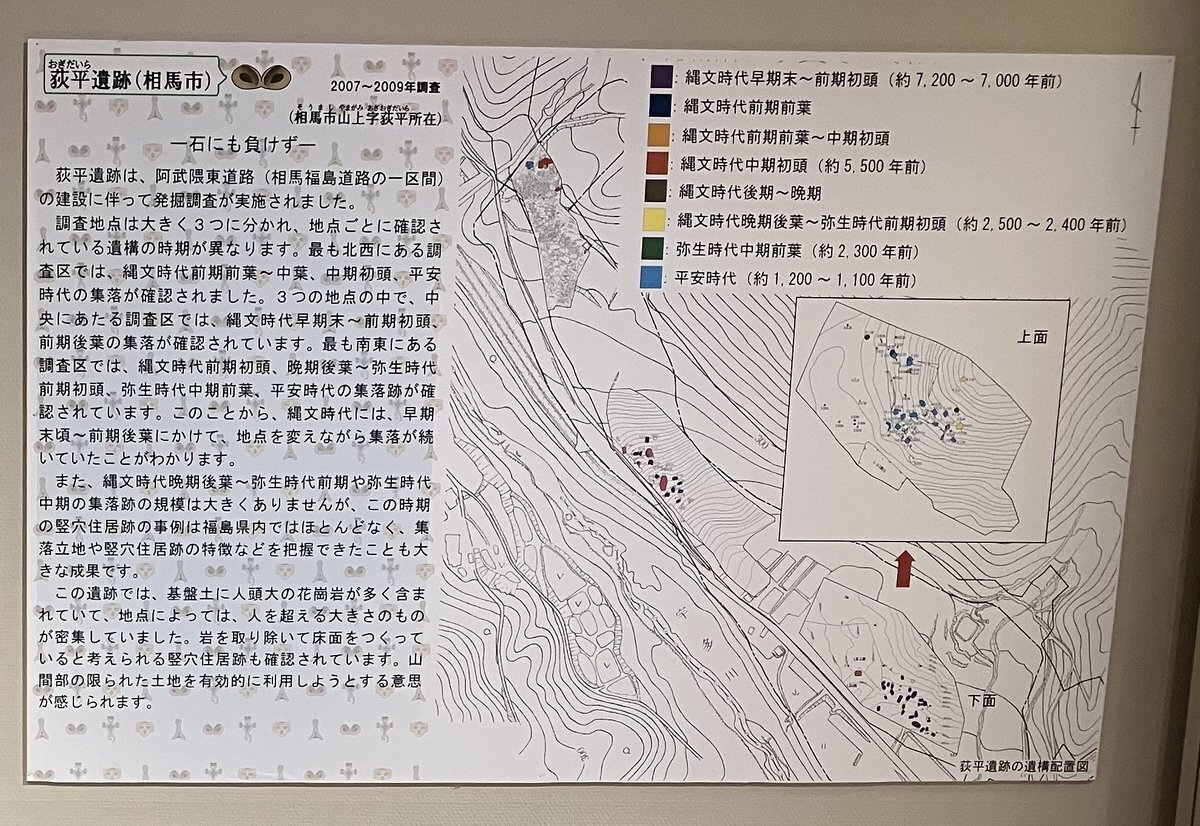 おぎだいら
荻平遺跡(相馬市)
2007～2009年調査
そうまし やまがみ あざおぎだいら
(相馬市山上字荻平所在)
―石にも負けず―
荻平遺跡は、阿武隈東道路（相馬福島道路の一区間）
の建設に伴って発掘調査が実施されました。
調査地点は大きく３つに分かれ、地点ごとに確認さ
れている遺構の時期が異なります。最も北西にある調
査区では、縄文時代前期前葉～中葉、中期初頭、平安
時代の集落が確認されました。３つの地点の中で、中
央にあたる調査区では、縄文時代早期末～前期初頭、
前期後葉の集落が確認されています。最も南東にある
調査区では、縄文時代前期初頭、晩期後葉～弥生時代
前期初頭、弥生時代中期前葉、平安時代の集落跡が確
認されています。このことから、縄文時代には、早期
末頃～前期後葉にかけて、地点を変えながら集落が続
いていたことがわかります。
また、縄文時代晩期後葉～弥生時代前期や弥生時代
中期の集落跡の規模は大きくありませんが、この時期
の竪穴住居跡の事例は福島県内ではほとんどなく、集
落立地や竪穴住居跡の特徴などを把握できたことも大
きな成果です。
この遺跡では、基盤土に人頭大の花崗岩が多く含ま
れていて、地点によっては、人を超える大きさのもの
が密集していました。岩を取り除いて床面をつくって
いると考えられる竪穴住居跡も確認されています。山
間部の限られた土地を有効的に利用しようとする意思
が感じられます。
：縄文時代早期末～前期初頭（約7,200～7,000年前）
：縄文時代前期前葉
：縄文時代前期前葉～中期初頭
：縄文時代中期初頭（約5,500年前）
：縄文時代後期～晩期
：縄文時代晩期後葉～弥生時代前期初頭（約2,500～2,400年前）
：弥生時代中期前葉（約2,300年前）
：平安時代（約1,200～1,100年前）
上面
300
宇
多
下面
荻平遺跡の遺構配置図